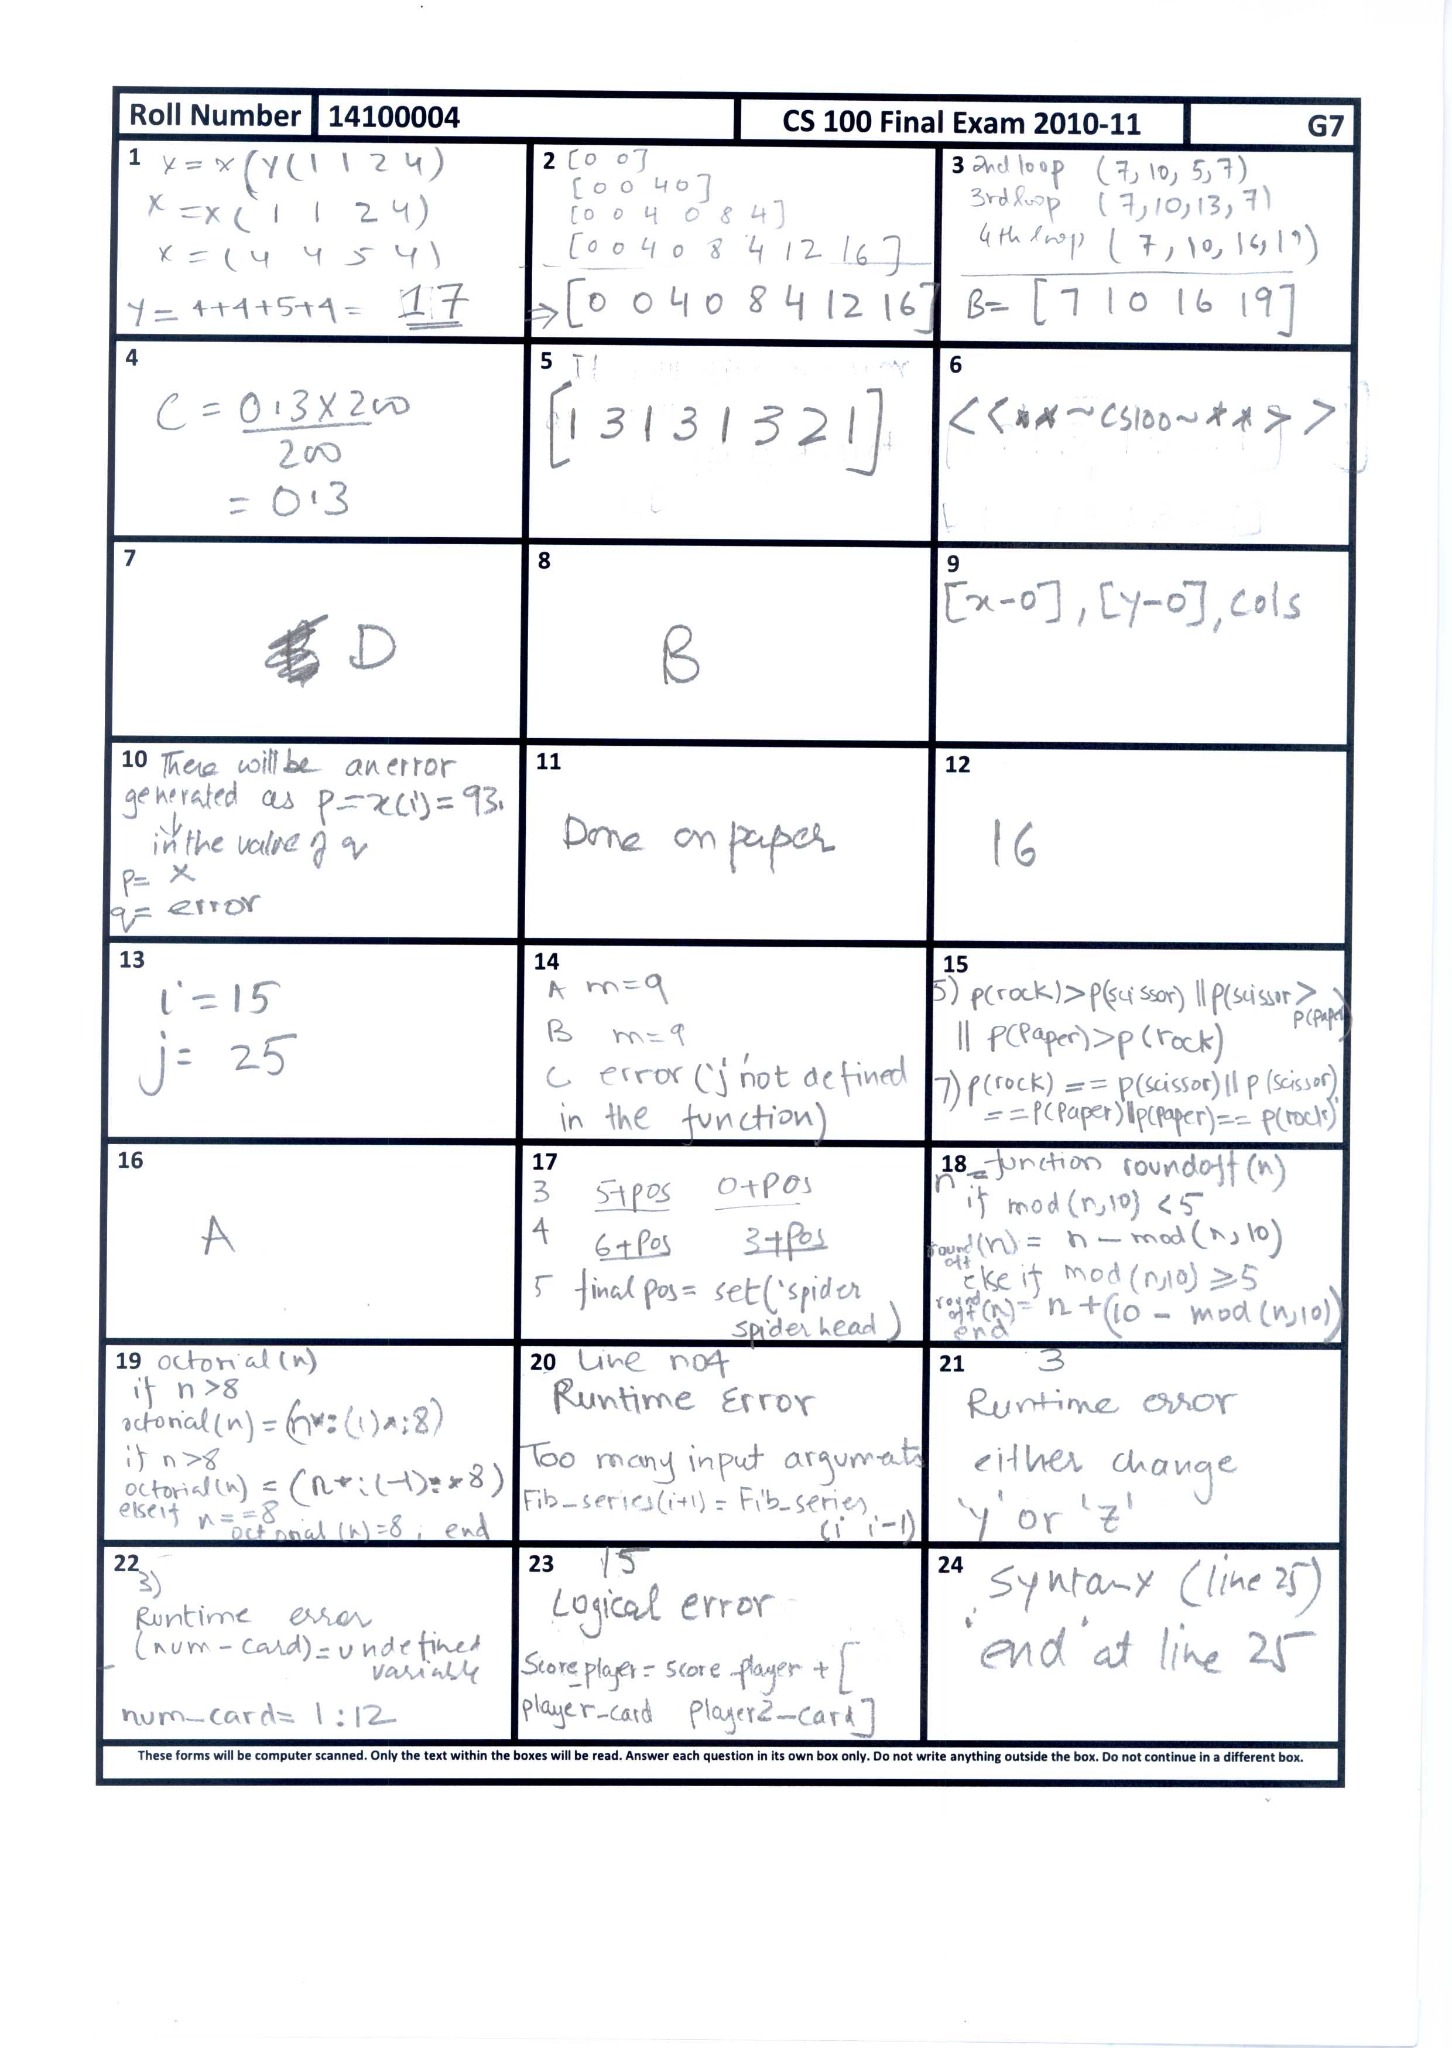 Roll Number 14100004 CS 100 Final Exam 2010-11 G7
1 x = x(y(1 1 2 4)
x = x( 1 1 2 4)
x = (4 4 5 4)
y = 4+4+5+4 = 17
2 [0 0]
[0 0 4 0]
[0 0 4 0 8 4]
[0 0 4 0 8 4 12 16]
⇒ [0 0 4 0 8 4 12 16]
3 2nd loop (7, 10, 5, 7)
3rd loop (7, 10, 13, 7)
4th loop (7, 10, 16, 19)
B= [7 10 16 19]
4
C = 0.3 x 200
200
= 0.3
5
[1 3 1 3 1 3 2 1]
6
<<**~CS100~**>>
7
D
8
B
9
[x-0], [y-0], cols
10 There will be an error
generated as p=x(i)=93.
in the value of q
p= x
q= error
11
Done on paper
12
16
13
i = 15
j = 25
14
A m=9
B m=9
C error ('j' not defined
in the function)
15
5) p(rock)>p(scissor) || p(scissor>
p(paper)
|| p(Paper)>p(rock)
7) p(rock) == p(scissor) || p(scissor)
==p(Paper)||p(paper)== p(rock)
16
A
17
3 5+pos 0+pos
4 6+pos 3+pos
5 final pos= set('spider
spider head)
18 n = function roundoff(n)
if mod(n,10) <5
round off (n) = n - mod(n,10)
else if mod(n,10) ≥5
round off (n) = n + (10 - mod(n,10))
end
19 octorial(n)
if n >8
octorial(n) = (n*:(1)*:8)
if n>8
octorial(n) = (n*:(-1):*8)
elseif n==8
octorial (n)=8; end
20 Line no4
Runtime Error
Too many input arguments
Fib_series(i+1) = Fib_series
(i i-1)
21 3
Runtime error
either change
'y' or 'z'
22
3)
Runtime error
(num-card)=undefined
variable
num_card= 1:12
23 15
Logical error
Score_player= score player + [
player_card player2_card]
24 Syntax (line 25)
'end' at line 25
These forms will be computer scanned. Only the text within the boxes will be read. Answer each question in its own box only. Do not write anything outside the box. Do not continue in a different box.